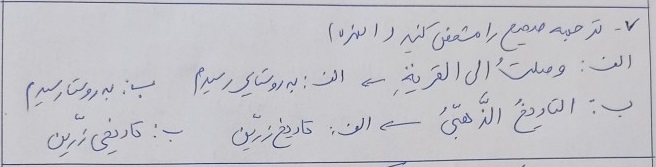 ۷- ترجمه صحیح را مشخص کنید (۱نمره)
الف: وصلتُ الی القریةِ ← الف: به روستایی رسیدم ب: به روستا رسیدم
ب: التاریخُ الذَّهبیُّ ← الف: تاریخ زرّین ب: تاریخی زرّین